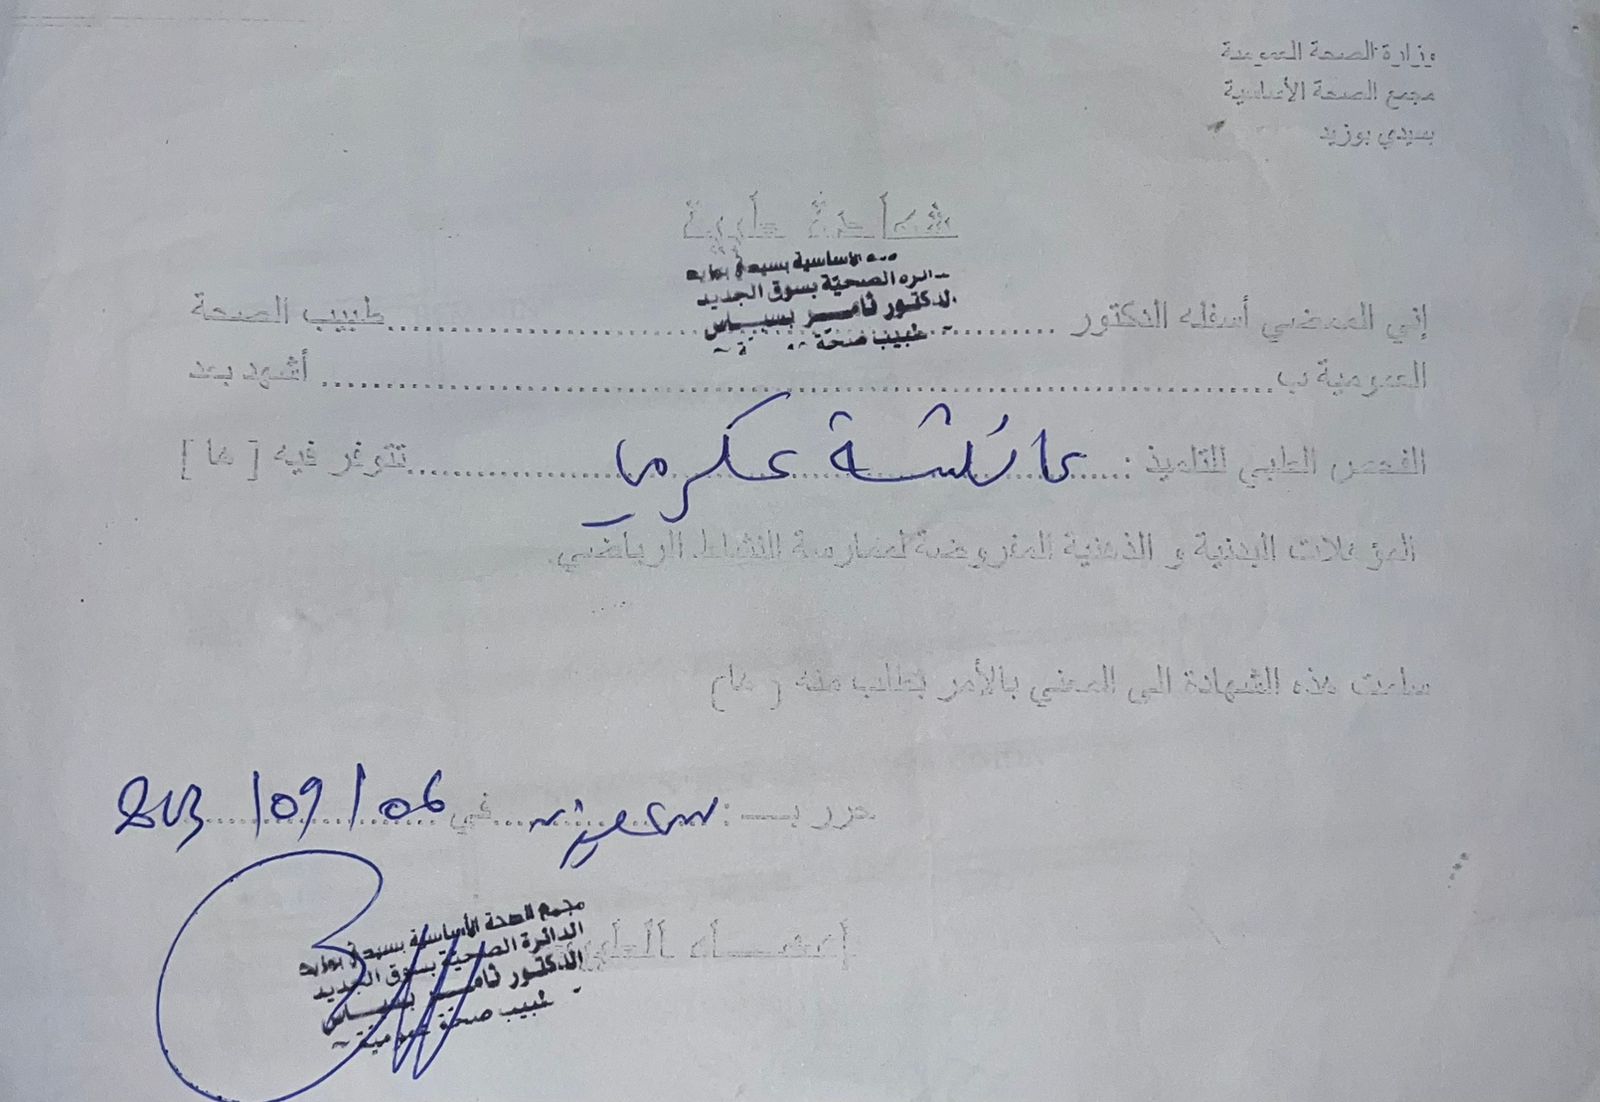 وزارة الصحة العمومية
مجمع الصحة الأساسية
بسيدي بوزيد
شهادة طبية
الأساسية بسيدي بوزيد
الدائرة الصحية بسوق الجديد
الدكتور ثامر بسباس
طبيب صحة
إني الممضي أسفله الدكتور ........ طبيب الصحة
العمومية ب ........ أشهد بعد
الفحص الطبي للتلميذ : عائشة عكرمي ........ تتوفر فيه [ ها ]
المؤهلات البدنية و الذهنية المفروضة لممارسة النشاط الرياضي.
سلمت هذه الشهادة الى المعني بالأمر بطلب منه ( ها)
حرر بـ : ........ في 06 / 09 /
إمضاء الطبيب
مجمع الصحة الأساسية بسيدي بوزيد
الدائرة الصحية بسوق الجديد
الدكتور ثامر بسباس
طبيب صحة عمومية